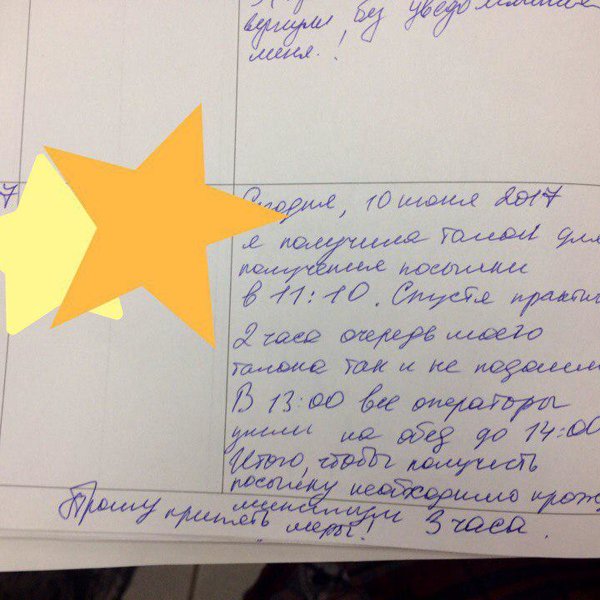 вернули, без уведомления
меня.!
7
Сегодня, 10 июня 2017
я получила талон для
получения посылки
в 11:10. Спустя практи
2 часа очередь моего
талона так и не подошл
В 13:00 все операторы
ушли на обед до 14:00
Итого, чтобы получить
посылку необходимо прож
минимум 3 часа.
Прошу принять меры!